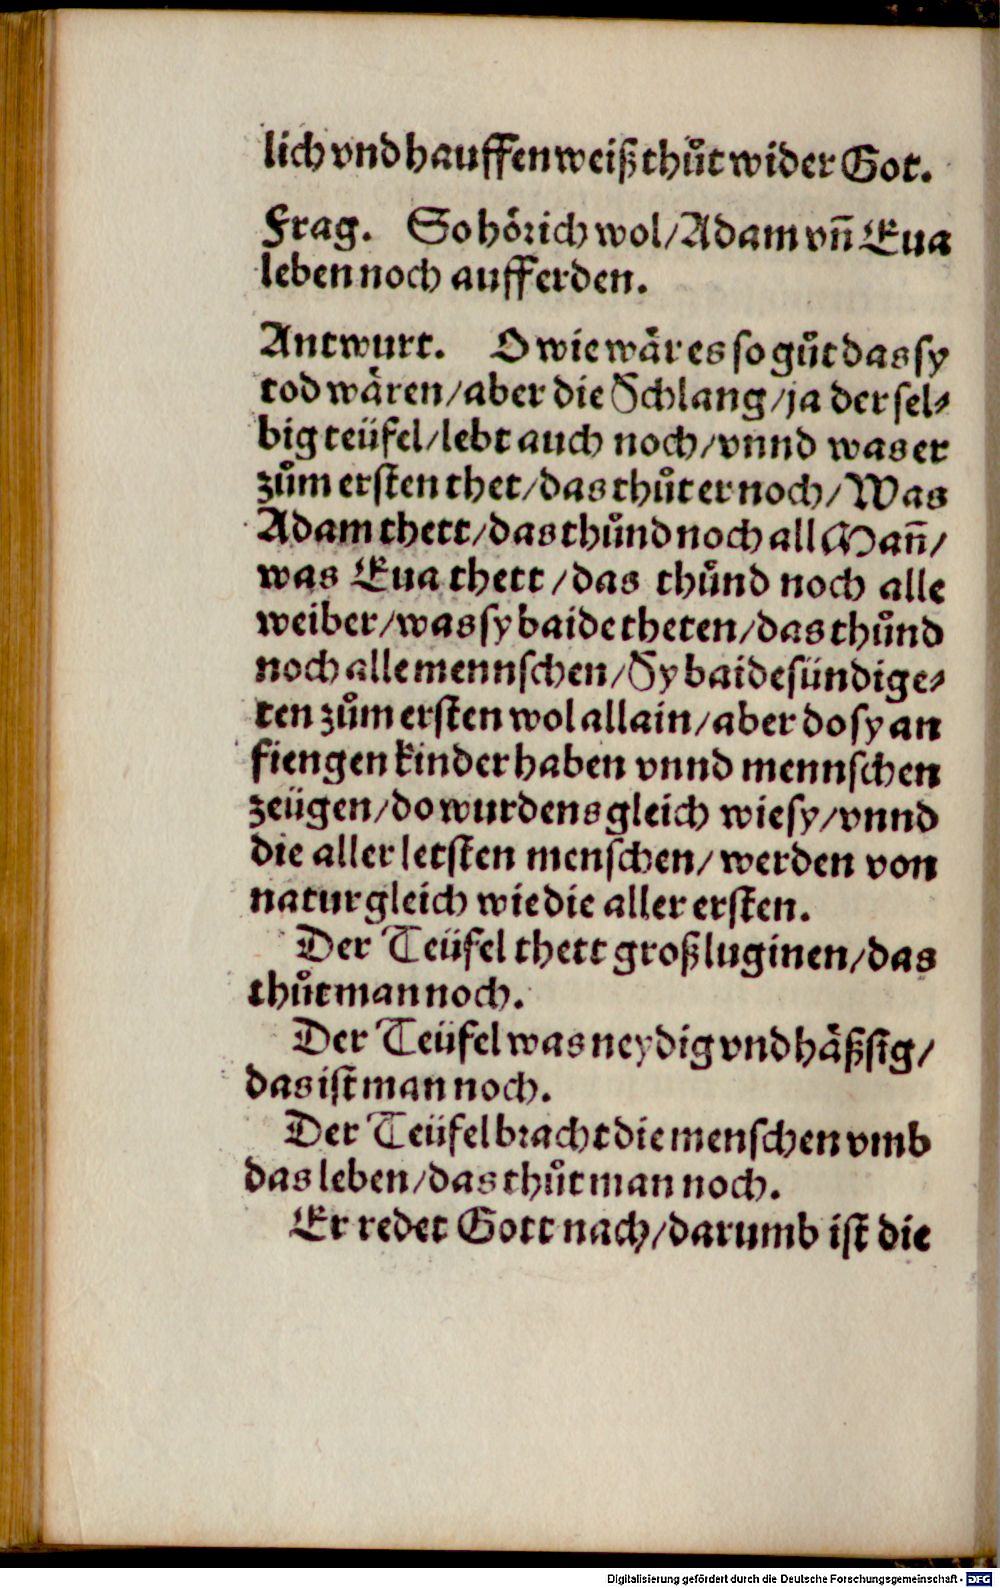 lich vnd hauffenweiß thůt wider Got.
Frag. So hoͤr ich wol/ Adam vñ Eua
leben noch auff erden.
Antwurt. O wie waͤr es so gůt das sy
tod waͤren/ aber die Schlang/ ja der sel⸗
big teüfel/ lebt auch noch/ vnnd was er
zům ersten thet/ das thůt er noch/ Was
Adam thett/ das thůnd noch all Mañ/
was Eua thett/ das thůnd noch alle
weiber/ was sy baide theten/ das thůnd
noch alle mennschen/ Sy baide sündige⸗
ten zům ersten wol allain/ aber do sy an
fiengen kinder haben vnnd mennschen
zeügen/ do wurdens gleich wie sy/ vnnd
die aller letsten menschen/ werden von
natur gleich wie die aller ersten.
Der Teüfel thett groß luginen/ das
thůt man noch.
Der Teüfel was neydig vnd haͤßsig/
das ist man noch.
Der Teüfel bracht die menschen vmb
das leben/ das thůt man noch.
Er redet Gott nach/ darumb ist die
Digitalisierung gefördert durch die Deutsche Forschungsgemeinschaft - DFG